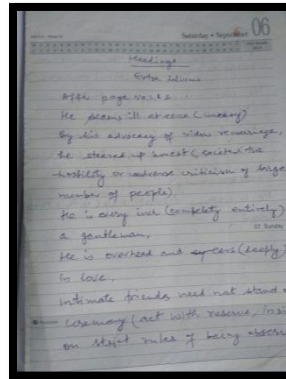 Saturday • September 06
Headings
Extra Idioms
After page no.
He seems ill at ease (uneasy)
By his advocacy of widow remarriage,
he steared up (excited the
hostility or adverse criticism of large
number of people).
He is every inch (completly entirely)
a gentleman.
07 Sunday
He is overhead and ears (deeply)
in love.
Intimate friends need not stand
ceremony (act with reserve,
on strict rules of being